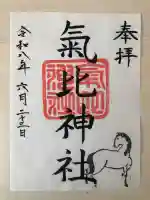 奉拝
氣比神社
令和八年六月二十三日